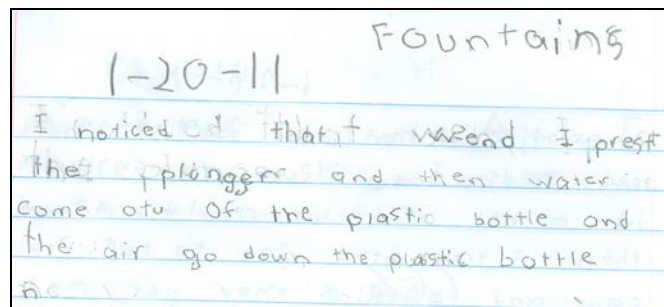 Fountains
1-20-11
I noticed that I prest
the plunger and then water
come otu Of the plastic bottle and
the air go down the plastic bottle